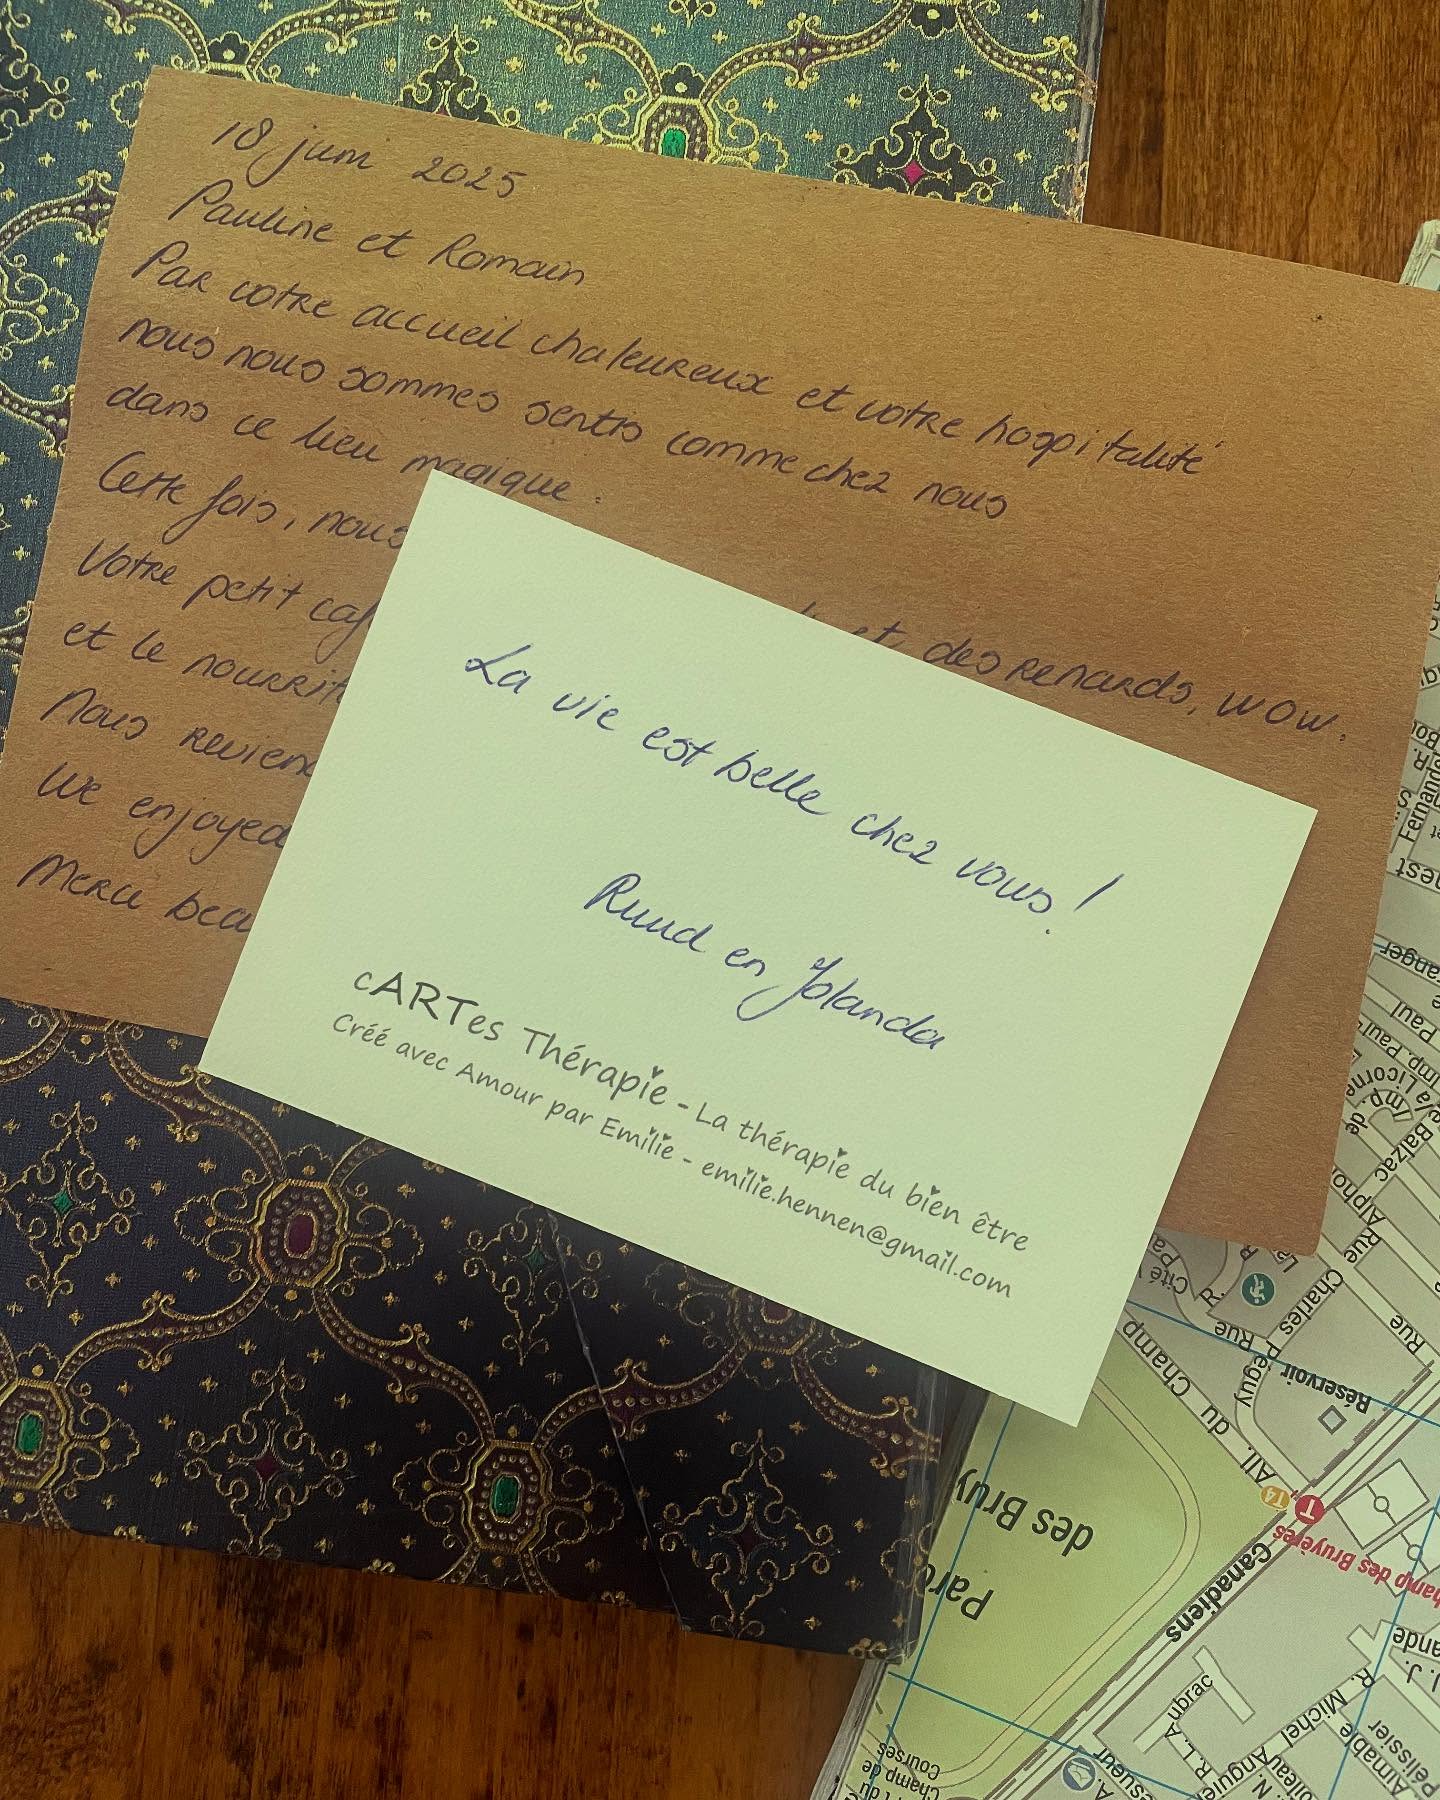 18 juin 2025
Pauline et Romain
Par votre accueil chaleureux et votre hospitalité
nous nous sommes sentis comme chez nous
dans ce lieu magique.
Cette fois, nous
et des renards, wow.
Votre petit caf
et le nourrit
Nous reviend
We enjoyed
Merci beau
La vie est belle chez vous!
Ruud en Jolanda
cARTes Thérapie - La thérapie du bien être
Créé avec Amour par Emilie - emilie.hennen@gmail.com
Fernand
anger
Paul
Imp. Paul
Imp. de la Licorne
Balzac
Rue Alpho
Cité
Rue Charles Péguy
Rue
Réservoir
All. du Champ
T4
T
hamp des Bruyères
Canadiens
Parc
des Bruy
J. J.
R. Michel Angui
Aimable
Pélissier
N. Boileau
R. l. A
ubrac
A.
esueur
Champ de
Courses